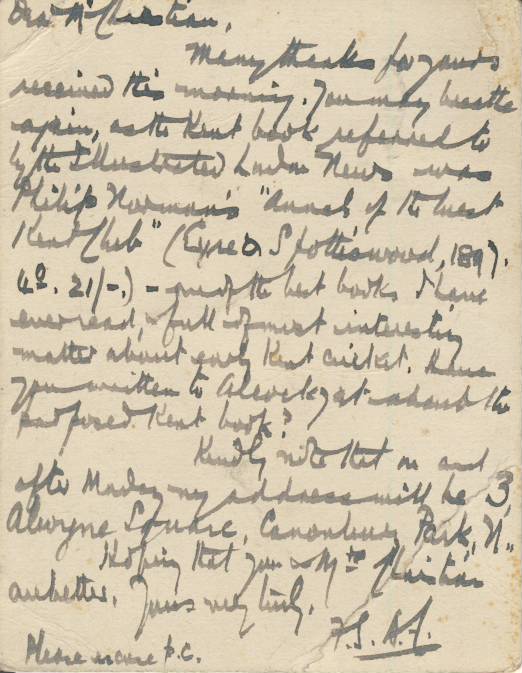 Dear Mr Christian,
Many thanks for yours
received this morning. You may breathe
again, as the Kent book referred to
by the Illustrated London News was
Philip Norman's "Annals of the West
Kent Club" (Eyre & Spottiswood, 1897.
4o. 21/-.) - one of the best books I have
ever read, - full of most interesting
matter about early Kent cricket. Have
you written to Alcock yet about the
proposed Kent book?
Kindly note that on and
after Monday my address will be 3,
Alwyne Square, Canonbury Park, N.,
Hoping that you & Mrs Christian
are better. Yours very truly,
F.S.A.-C.
Please excuse p.c.